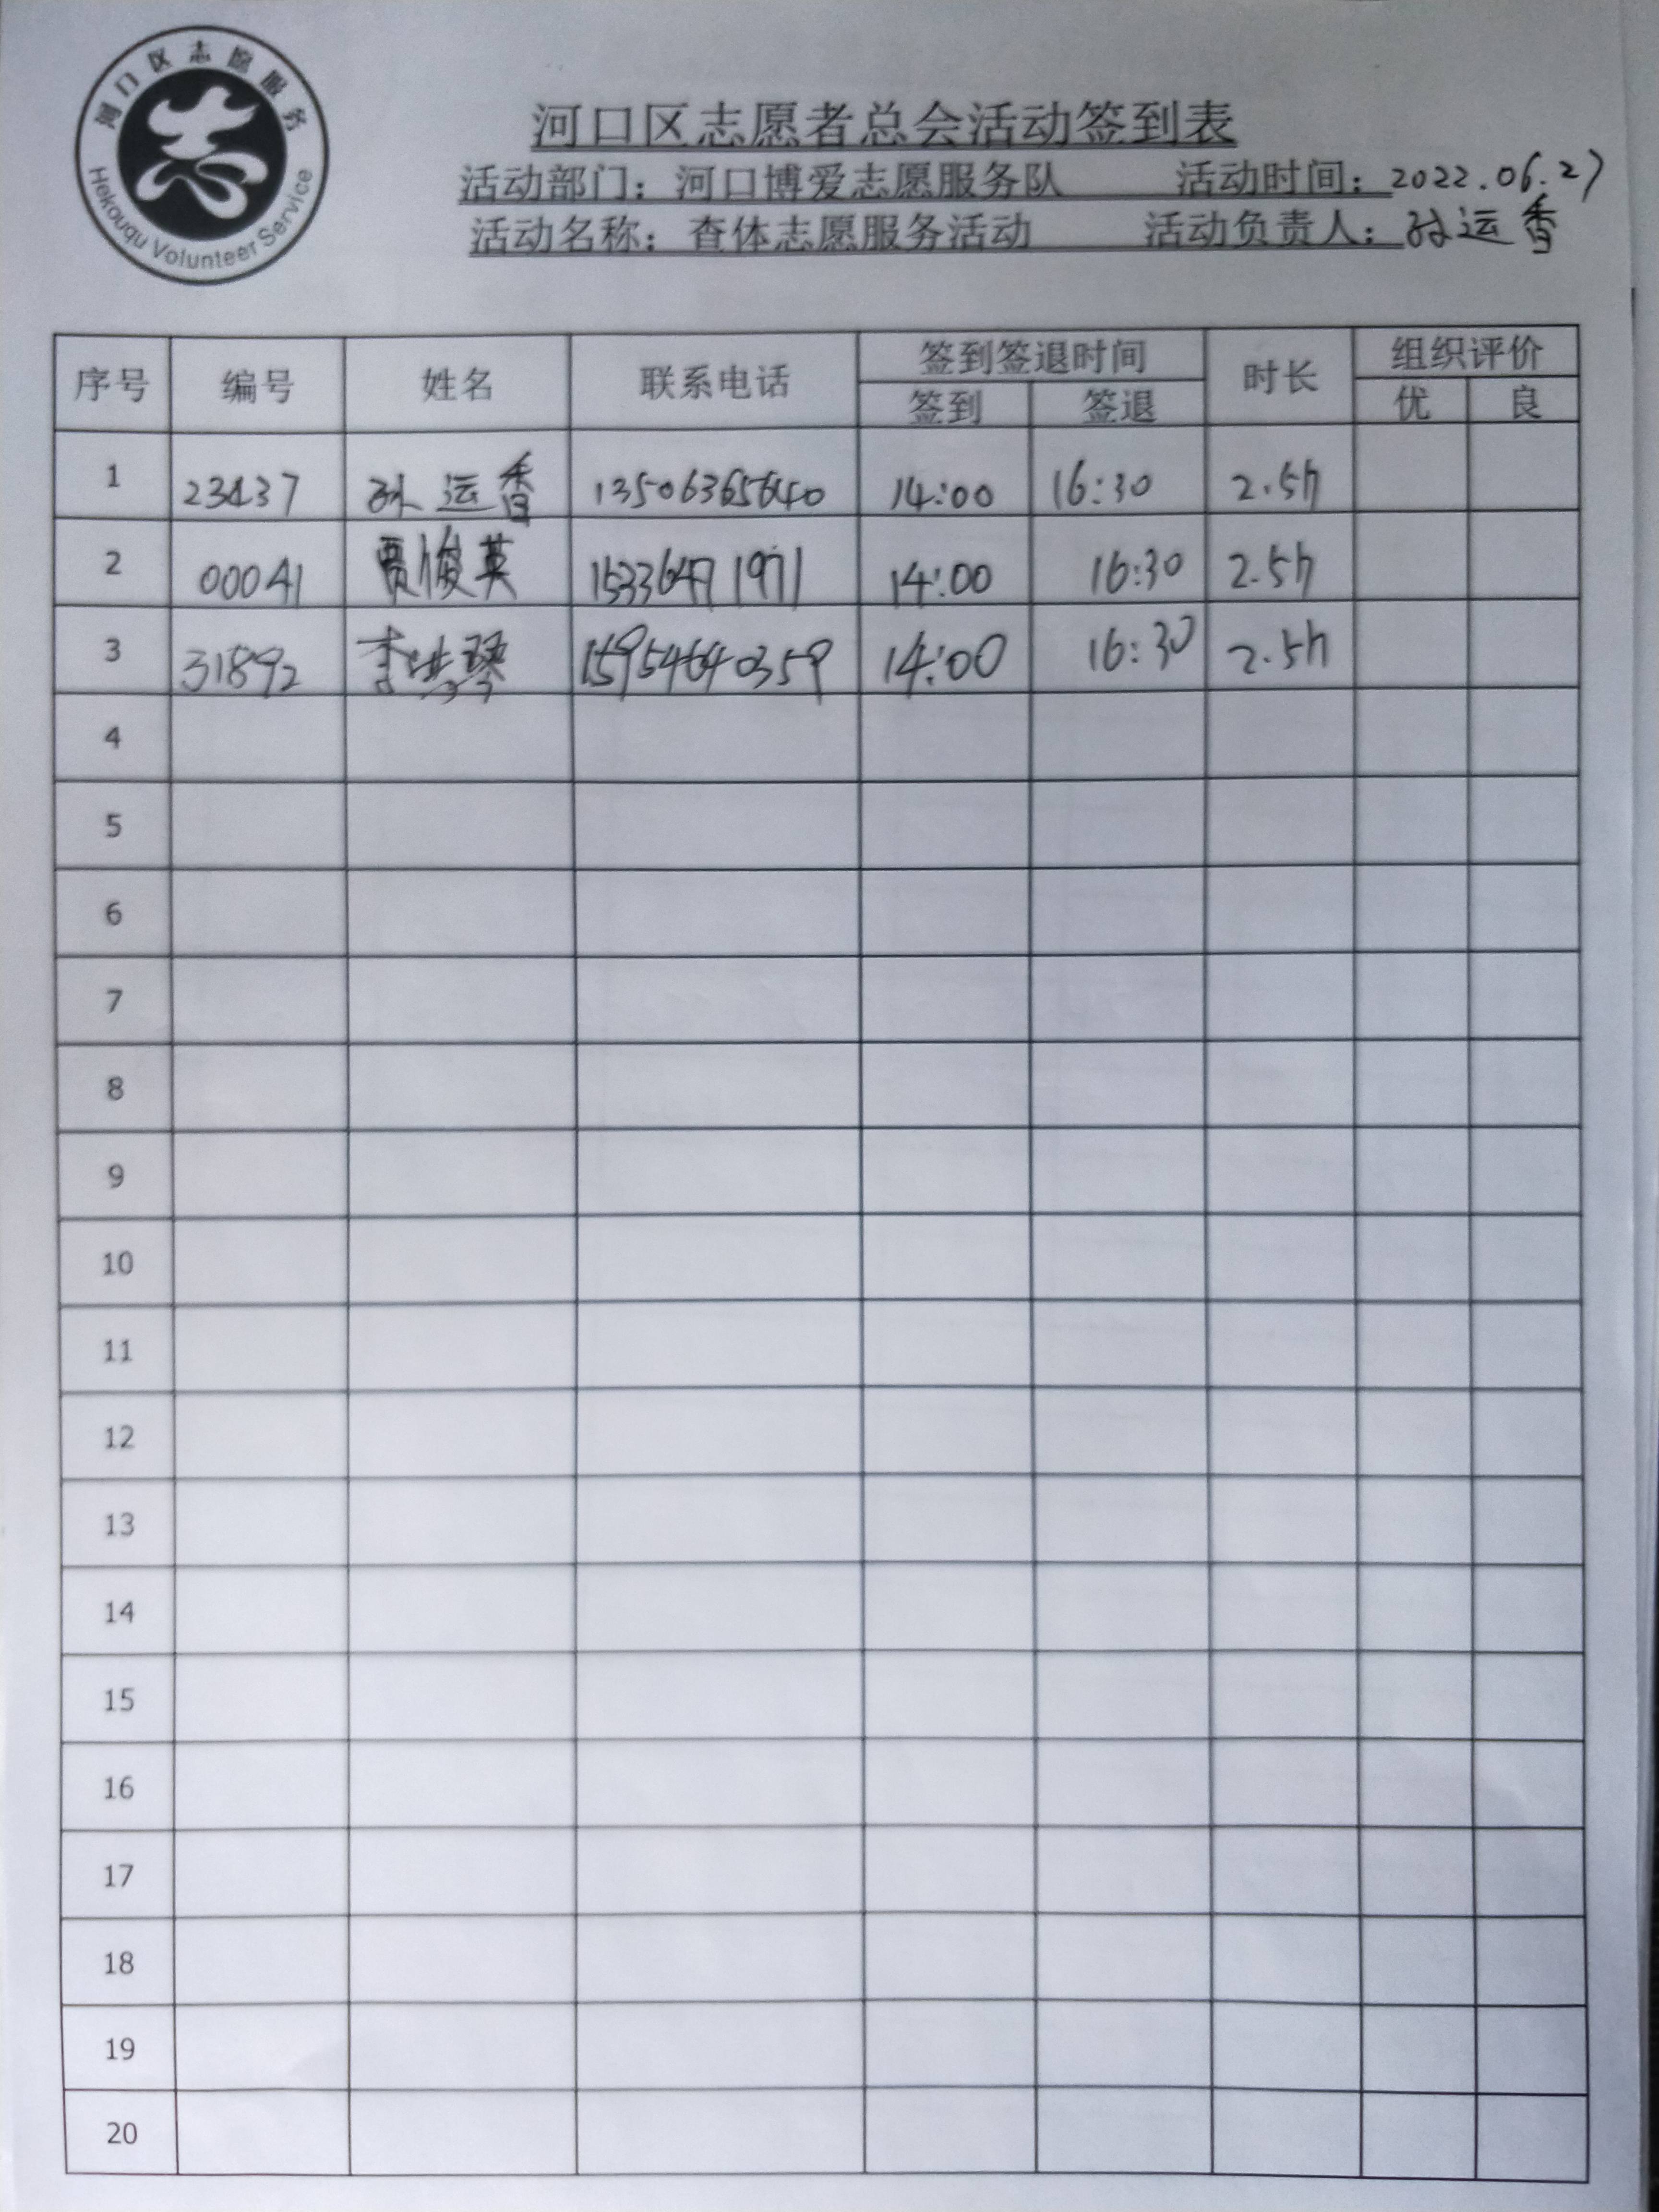 河口区志愿服务
Hekouqu Volunteer Service
河口区志愿者总会活动签到表
活动部门：河口博爱志愿服务队 活动时间：2022.06.27
活动名称：查体志愿服务活动 活动负责人：孙运香
序号 编号 姓名 联系电话 签到签退时间 时长 组织评价
签到 签退 优 良
1 23437 孙运香 13506365640 14:00 16:30 2.5h
2 00041 贾俊英 15336471971 14:00 16:30 2.5h
3 31892 李 琴 15954640359 14:00 16:30 2.5h
4
5
6
7
8
9
10
11
12
13
14
15
16
17
18
19
20